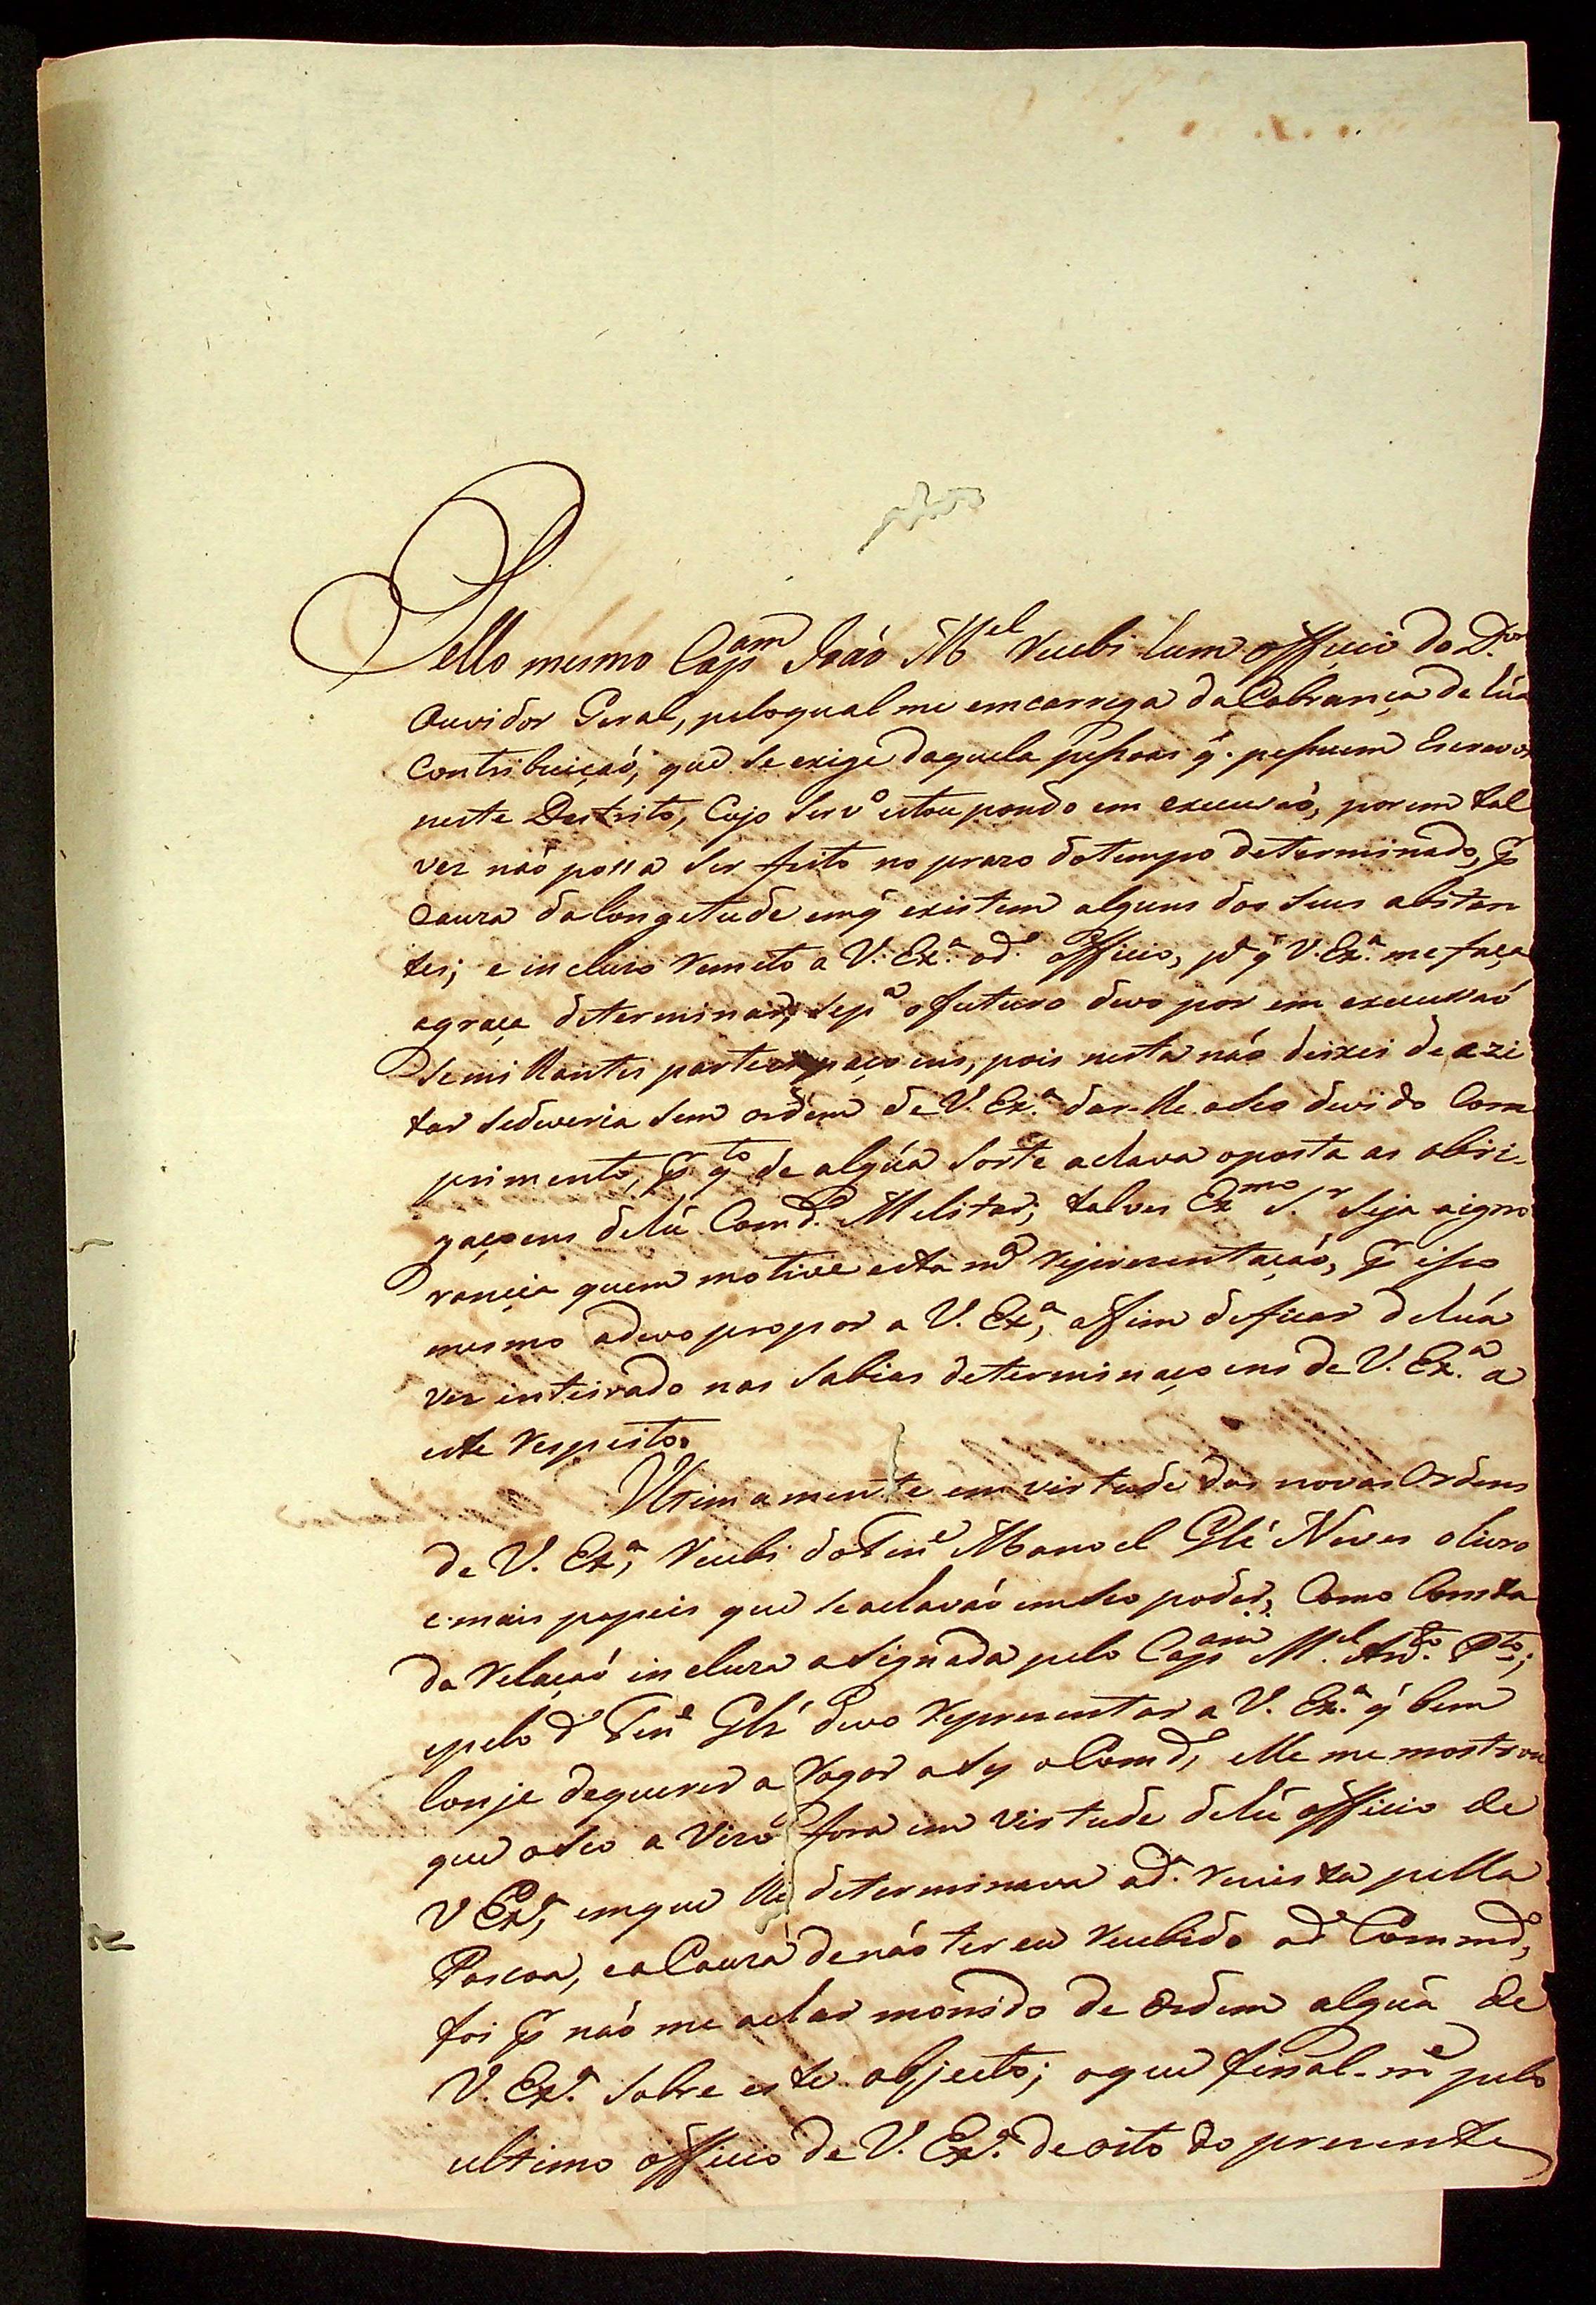 Pello mesmo Capam João Mel recebi hum officio do Dor
Ouvidor Geral, peloqual me emcarrega da Cobrança de húa
Contribuiçaõ, que se exige daquela pessoas q. possuem Escravos
neste Destrito, Cujo servo estou pondo em execusaõ, porem tal
vez naõ possa ser feito no prazo dotempo determinado, p
Cauza dalongetude emq existem alguns dos seus abitan
tes; e incluzo remeto a V. Exa. o do officio, pa q V. Exa. me faça
agraça determinar, se pa o futuro devo por em execussaõ
Semilhantes partecipaçoens, pois nesta não deixei de azi
tar sedeveria sem ordem de V. Exa. dar-lhe o seo devido Com
primento, p qto de algúa sorte achava oposta as obri-
gaçoens de hú Comde. Melitar; talves Exmo Sr. seja a igno
rancia quem motive esta ma reprezentaçaõ, p isso
mesmo adevo propor a V. Exa, affim deficar de húa
vez inteirado nas Sabias determinaçoens de V. Exa. a
este respeito.
Ultimamente em virtude das novas Ordens
de V. Exa, recebi do Tene Manoel Glz' Neves o livro
e mais papeis que se achavaõ emseo poder, Como Consta
da Relaçaõ incluza asignada pelo Capam Mel. Anto. Pto;
epelo do Tene Glz' devo reprezentar a V. Exa. q bem
lonje dequerer a rogar asy o Comdo, elle me mostrou
que oseo a vizo fora em virtude de hú officio de
V Exa, emque lhe determinava a da. revista pella
Pascoa, e a Cauza de não ter eu recebido o do Commdo,
foi p naõ me achar monido de Ordem algúa de
V. Exa. sobre este objecto; oque final-me pelo
ultimo officio de V. Exa. de oito do prezente